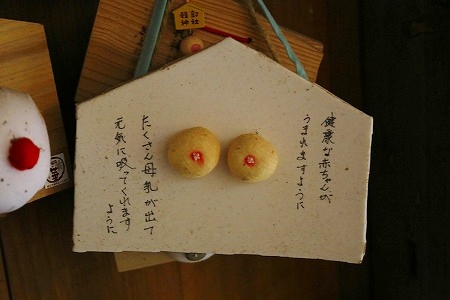 健康な赤ちゃんが
うまれますように
たくさん母乳が出て
元気に吸ってくれます
ように